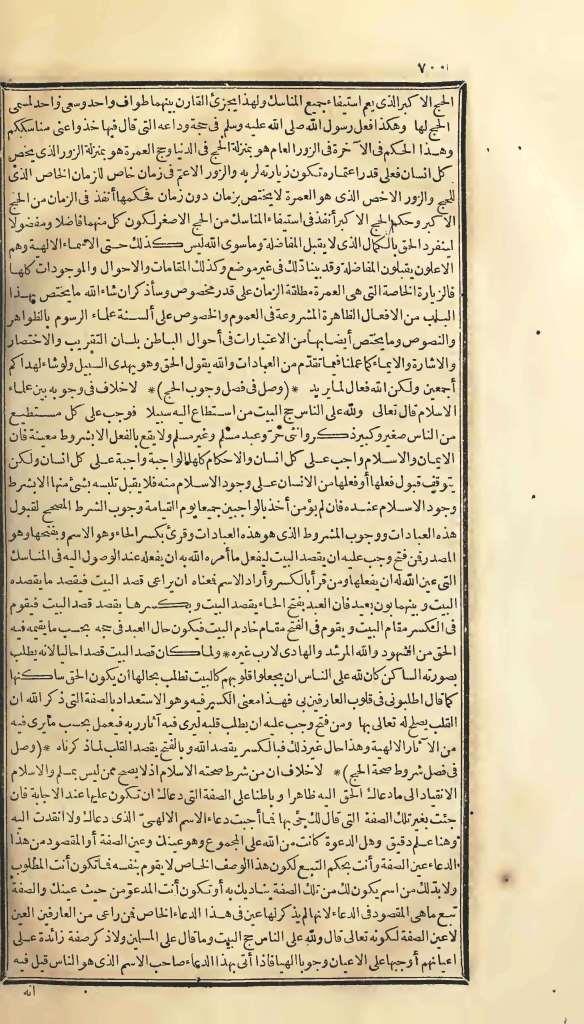 ٧٠٠
الحج الاكبر الذي يعم استيفاء جميع المناسك ولهذا يجزئ القارن بينهما طواف واحد وسعى واحد لمسمى
الحج لها وهكذا فعل رسول الله صلى الله عليه وسلم فى حجة وداعه التى قال فيها خذوا عنى مناسككم
وهذا الحكم فى الآخرة فى الزور العام هو بمنزلة الحج فى الدنيا وحج العمرة هو بمنزلة الزور الذى يخص
كل انسان فعلى قدر اعتماره تكون زيارته لربه والزور الاعم فى زمان خاص للزمان الخاص الذى
للحج والزور الاخص الذى هو العمرة لا يختص بزمان دون زمان فحكمها أنفذ فى الزمان من الحج
الاكبر وحكم الحج الاكبر أنفذ فى استيفاء المناسك من الحج الاصغر لكون كل منهما فاضلا ومفضولا
لينفرد الحق بالكمال الذى لا يقبل المفاضلة وماسوى الله ليس كذلك حتى الاسماء الالهية وهم
الاعلون يقبلون المفاضلة وقد بينا ذلك فى غير موضع وكذلك المقامات والاحوال والموجودات كلها
فالزيارة الخاصة التى هى العمرة مطلقة الزمان على قدر مخصوص وسأذكر ان شاء الله ما يختص بهذا
الباب من الافعال الظاهرة المشروعة فى العموم والخصوص على ألسنة علماء الرسوم بالظواهر
والنصوص وما يختص أيضا بها من الاعتبارات فى أحوال الباطن بلسان التقريب والاختصار
والاشارة والايماء كما عملنا فيما تقدم من العبادات والله يقول الحق وهو يهدى السبيل ولو شاء لهداكم
أجمعين ولكن الله فعال لما يريد *(وصل فى فصل وجوب الحج)* لاخلاف فى وجوبه بين علماء
الاسلام قال تعالى ولله على الناس حج البيت من استطاع اليه سبيلا فوجب على كل مستطيع
من الناس صغير وكبير ذكر وانثى حر وعبد مسلم وغير مسلم ولا يقع بالفعل الا بشروط معينة فان
الايمان والاسلام واجب على كل انسان والاحكام كلها الواجبة واجبة على كل انسان ولكن
يتوقف قبول فعلها أو فعلها من الانسان على وجود الاسلام منه فلا يقبل تلبسه بشئ منها الا بشرط
وجود الاسلام عنده فان لم يؤمن أخذ بالواجبين جميعا يوم القيامة وجوب الشرط المصحح لقبول
هذه العبادات ووجوب المشروط الذى هو هذه العبادات وقرئ بكسر الحاء وهو الاسم وبفتحها وهو
المصدر فمن فتح وجب عليه ان يقصد البيت ليفعل ما أمره الله به ان يفعله عند الوصول اليه فى المناسك
التى عين الله له ان يفعلها ومن قرأ بالكسر وأراد الاسم فمعناه ان يراعى قصد البيت فيقصد ما يقصده
البيت وبينهما بون بعيد فان العبد بفتح الحاء يقصد البيت وبكسرها يقصد قصد البيت فيقوم
فى الكسر مقام البيت ويقوم فى الفتح مقام خادم البيت فيكون حال العبد فى حجه بحسب ما يقيمه فيه
الحق من الشهود والله المرشد والهادى لارب غيره * ولما كان قصد البيت قصدا حاليا لانه يطلب
بصورته الساكن كان لله على الناس ان يجعلوا قلوبهم كالبيت تطلب بحالها أن يكون الحق ساكنها
كما قال اطلبونى فى قلوب العارفين بى فهذا معنى الكسر فيه وهو الاستعداد بالصفة التى ذكر الله ان
القلب يصلح له تعالى بها ومن فتح وجب عليه ان يطلب قلبه ليرى فيه آثار ربه فيعمل بحسب ما يرى فيه
من الآثار الالهية وهذا حال غير ذلك فبالكسر يقصد الله وبالفتح يقصد القلب لما ذكرناه *(وصل
فى فصل شروط صحة الحج)* لاخلاف ان من شرط صحته الاسلام اذ لا يصح ممن ليس بمسلم والاسلام
الانقياد الى ما دعاك الحق اليه ظاهرا وباطنا على الصفة التى دعاك ان تكون عليها عند الاجابة فان
جئت بغير تلك الصفة التى قال لك تجئ بها فما أجبت دعاء الاسم الالهى الذى دعاك ولا انقدت اليه
وهنا علم دقيق وهل الدعوة كانت من الله على المجموع وهو عينك وعين الصفة أو المقصود من هذا
الدعاء عين الصفة وأنت بحكم التبع لكون هذا الوصف الخاص لا يقوم بنفسه فما تكون أنت المطلوب
ولا بد لك من اسم يكون لك من تلك الصفة يناديك به أو تكون أنت المدعو من حيث عينك والصفة
تبع ما هى المقصود فى الدعاء لانها لم يذكر لها عين فى هذا الدعاء الخاص فمن راعى من العارفين العين
لا عين الصفة لكونه تعالى قال ولله على الناس حج البيت وما قال على المسلمين ولا ذكر صفة زائدة على
اعيانهم أوجبها على الاعيان وجوبا الهيا فاذا أتى بهذا الدعاء صاحب الاسم الذى هو الناس قبل فيه
انه